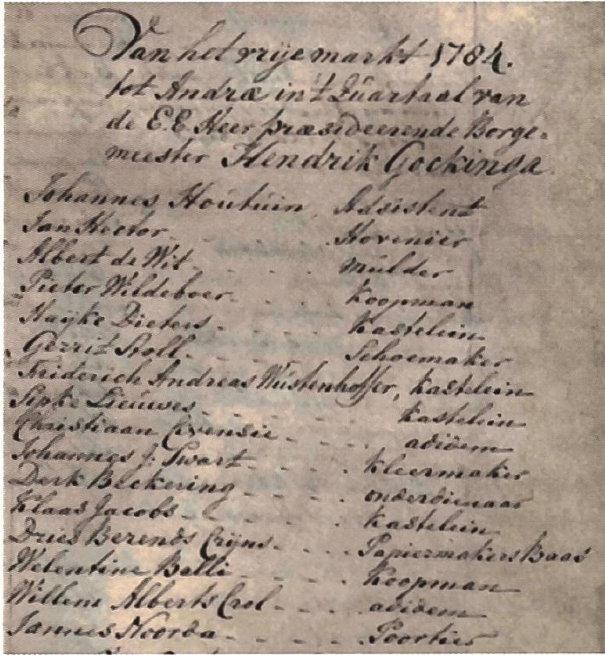 Van het vrije markt 1784.
tot Andræ in't Quartaal van
de E.E. Heer præsideerende Borge-
meester Hendrik Gockinga.
Johannes Houtuin, Adsistent
Jan Hector - Hovenier
Albert de Wit - - - mulder
Pieter Wildeboer - - - Koopman
Haijke Dieters - - - Kastelein
Gerrit Stoll - - - Schoemaker
Friderich Andreas Wüstenhoffer, Kastelein
Sipke Lieuwes - - - Kastelein
Christiaan - - - adidem
Johannes J. Swart - - - Kleermaker
Derk Beckering - - - onderdienaar
Klaas Jacobs - - - Kastelein
Dries Berends Crijns - - - Papiermakers Baas
Welentine Belli - - - Koopman
Willem Alberts Crol - - - adidem
Jannes Noorda - - - Poortier